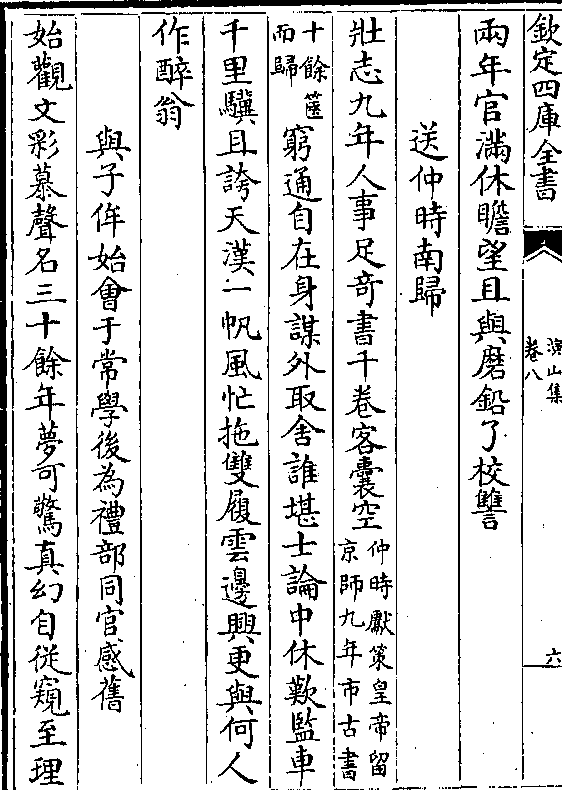 欽定四庫全書
演山集
卷八
六
兩年官滿休瞻望且與磨鉛了校讐
送仲時南歸
壯志九年人事足竒書千卷客囊空仲時獻策皇帝留京師九年市古書
十餘篋而歸窮通自在身謀外取舍誰堪士論中休歎監車
千里驥且誇天漢一帆風忙拖雙履雲邊興更與何人
作醉翁
與子侔始會于常學後為禮部同官感舊
始觀文彩慕聲名三十餘年夢可驚真幻自從窺至理